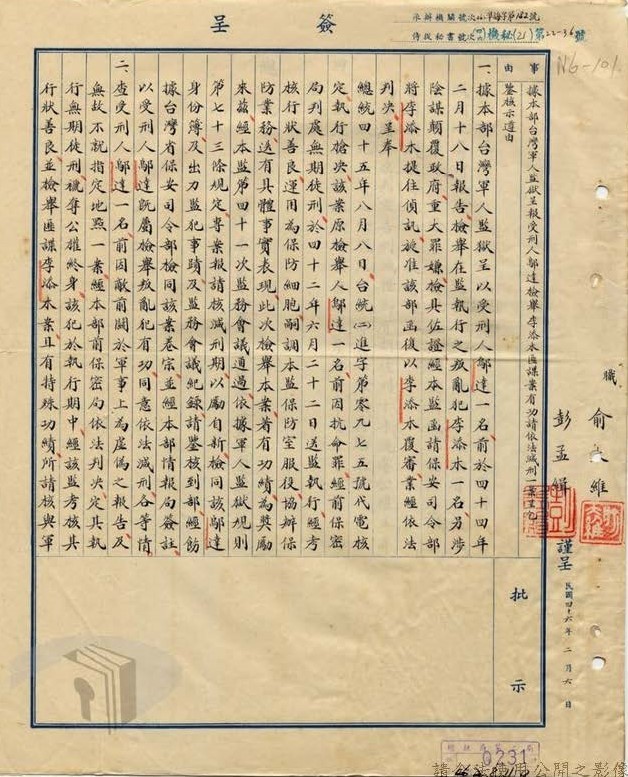 簽呈
承辦機關號次
侍從秘書號次 機秘(21)第22-36號
N6-101
事由
據本部台灣軍人監獄呈報受刑人鄔達檢舉李添木匪諜案有功請依法減刑一案呈乞
鑒核示遵由
一、據本部台灣軍人監獄呈以受刑人鄔達一名前於四十四年
二月十八日報告檢舉在監執行之叛亂犯李添木一名另涉
陰謀顛覆政府重大罪嫌檢具佐證經本監函請保安司令部
將李添木提往偵訊旋准該部函復以李添木覆審業經依法
判決呈奉
總統四十五年八月八日台統(二)進字第零九七五號代電核
定執行槍決該案原檢舉人鄔達一名前因抗命罪經前保密
局判處無期徒刑於四十二年六月二十二日送監執行經考
核行狀善良運用為保防細胞嗣調本監保防室服役協辦保
防業務迭有具體事實表現此次檢舉本案著有功績為獎勵
來茲經本監第四十一次監務會議通過依據軍人監獄規則
第七十三條規定專案報請核減刑期以勵自新檢同該鄔達
身份簿及出力監犯事蹟及監務會議紀錄請鑒核到部經飭
據台灣省保安司令部檢同該案卷宗並經本部情報局簽註
以受刑人鄔達既屬檢舉叛亂犯有功同意依法減刑各等情
二、查受刑人鄔達一名前因敵前關於軍事上為虛偽之報告及
無故不就指定地點一案經本部前保密局依法判決定其執
行無期徒刑褫奪公權終身該犯於執行期中經該監考核其
行狀善良並檢舉匪諜李添木案且有特殊功績所請核與軍
批示
職
俞大維
彭孟緝
謹呈
民國四十六年二月六日
0231